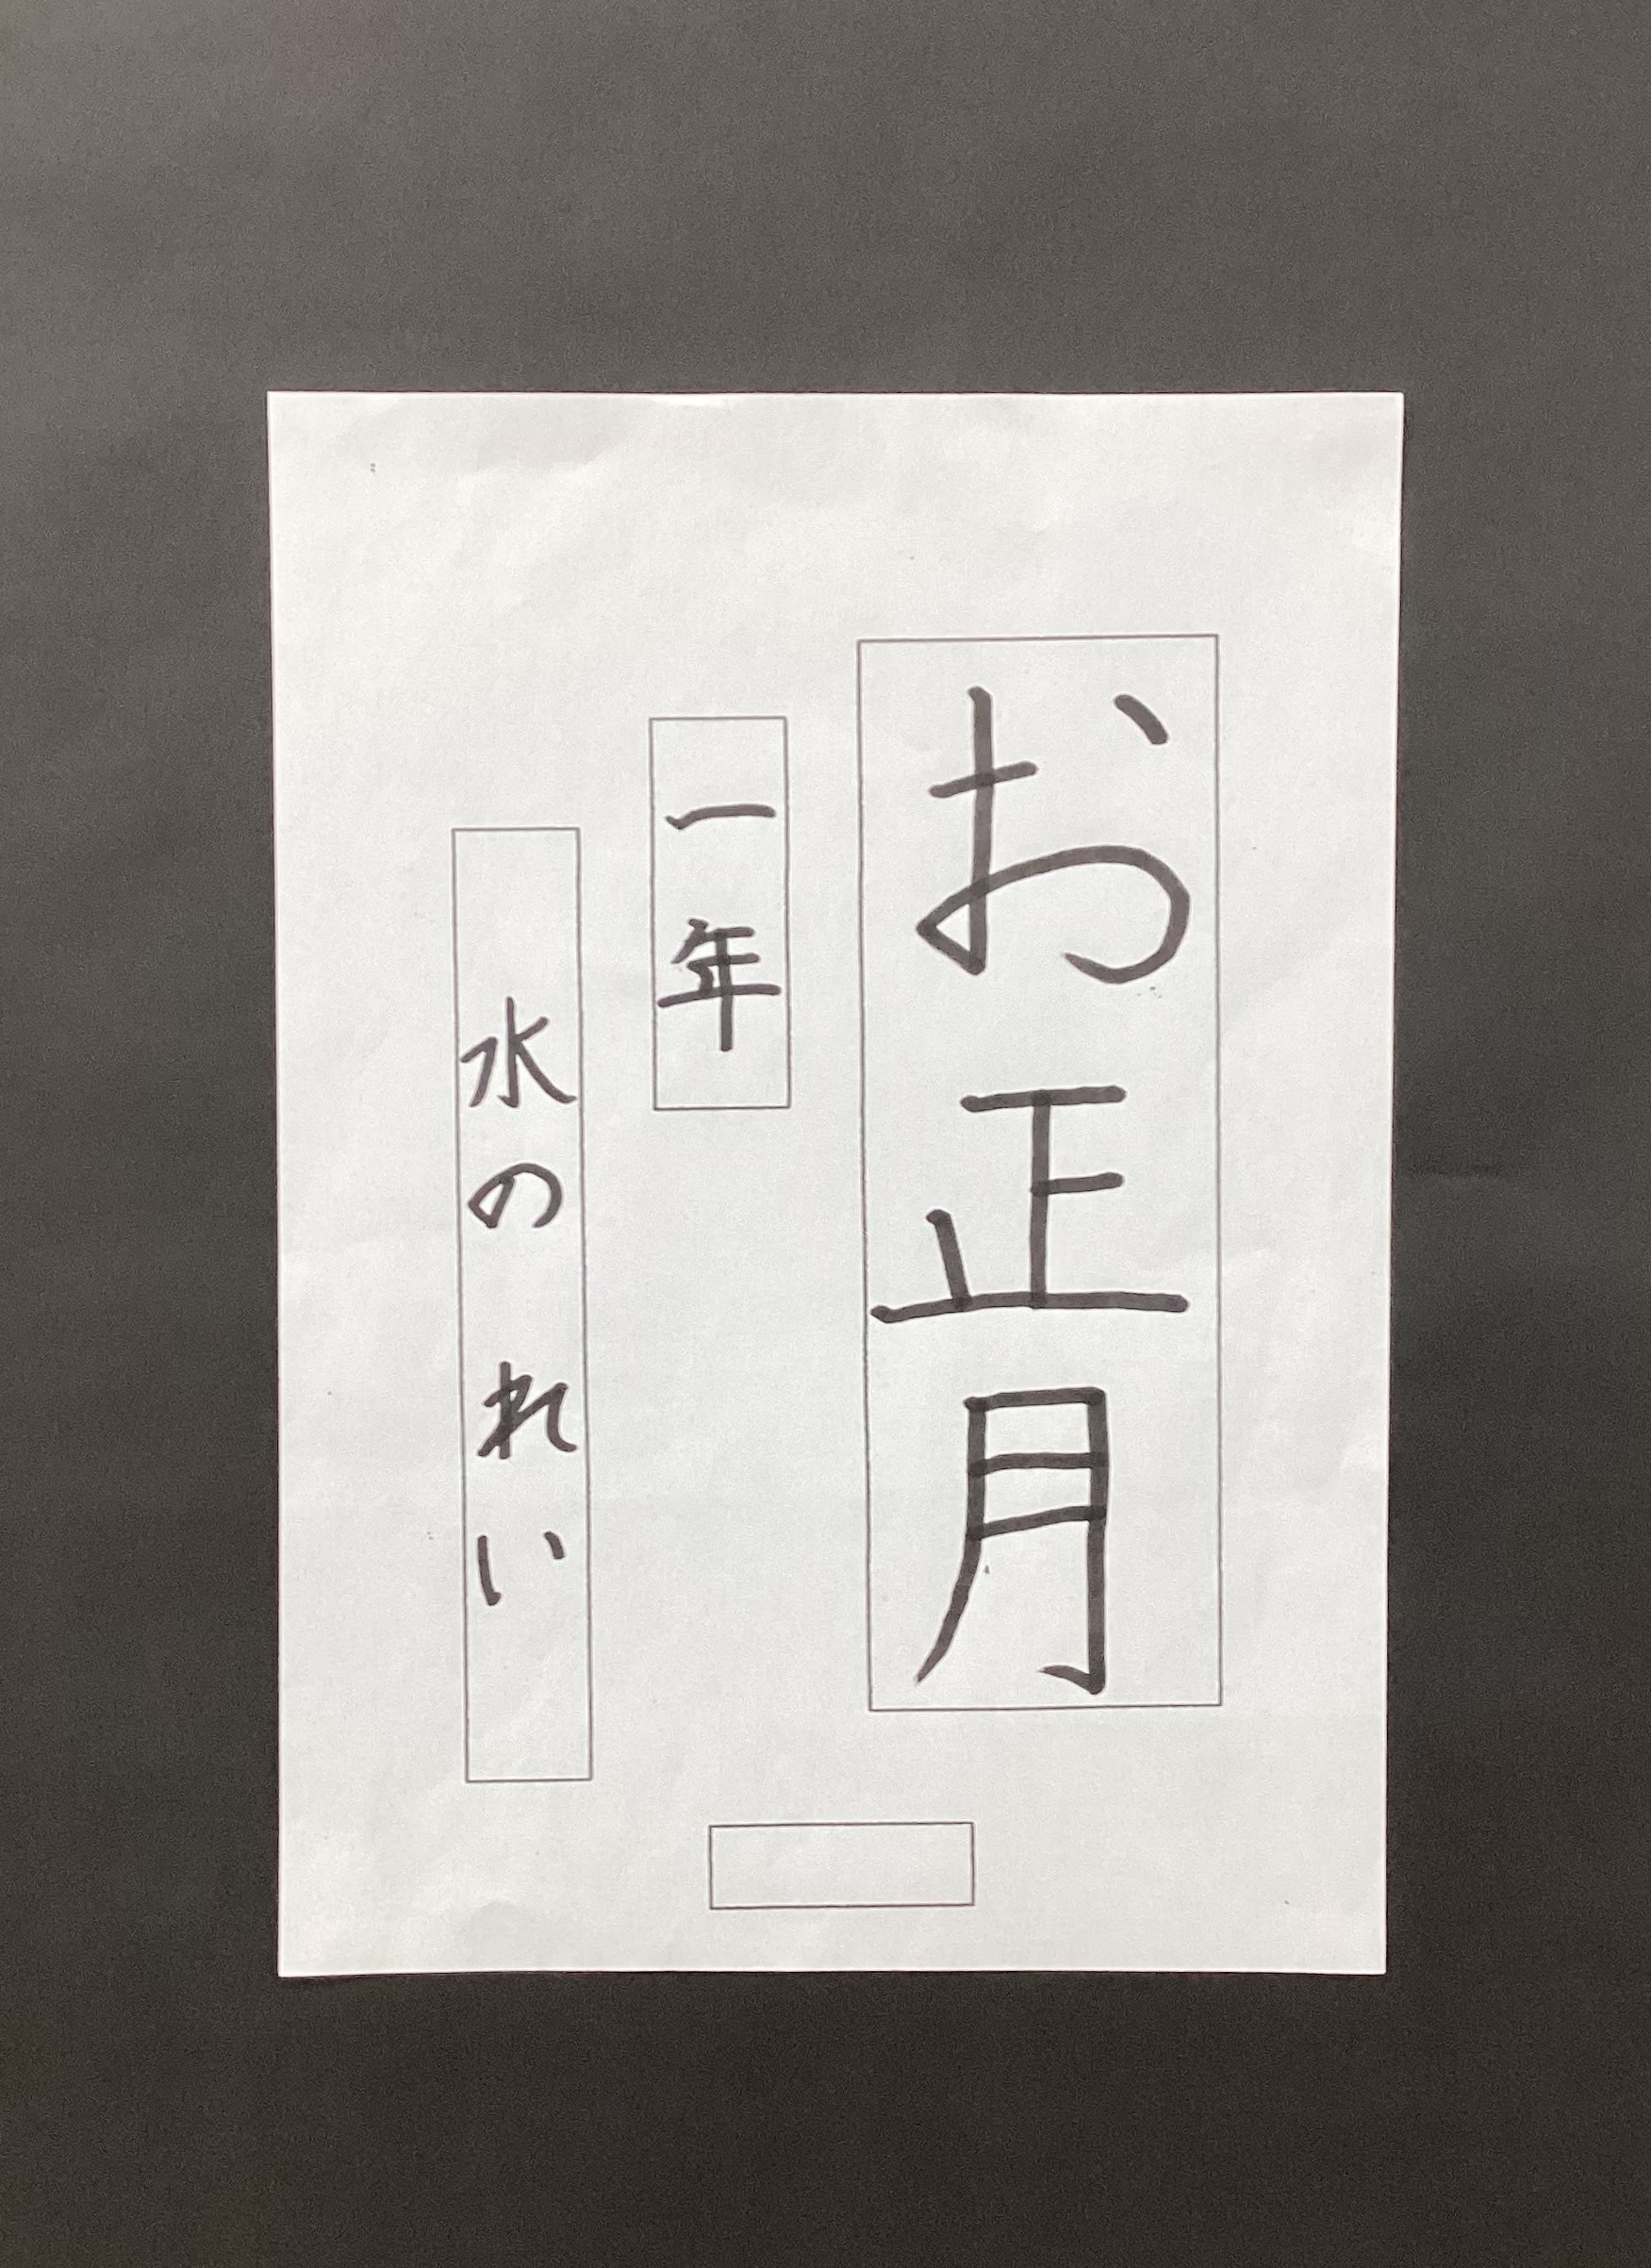 お正月
一年
水のれい